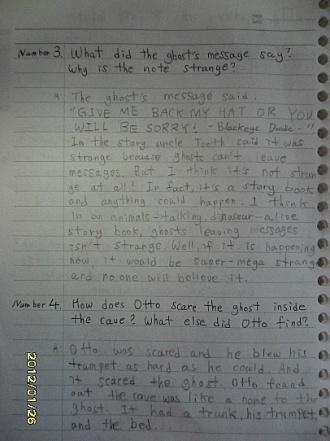 Number 3. What did the ghost's message say?
Why is the note strange?
The ghost's message said.
"GIVE ME BACK MY HAT OR YOU
WILL BE SORRY! - Blackeye Doode - "
In the story, uncle Tooth said it was
strange because ghosts can't leave
messages. But I think it's not stran
ge at all! In fact, it's a story book
and anything could happen. I think
in an animals-talking, dinosaur-alive
story book, ghosts leaving messages
isn't strange. Well, if it is happening
now it would be super-mega strange
and no one will believe it.
Number 4. How does Otto scare the ghost inside
the cave? What else did Otto find?
Otto was scared and he blew his
trumpet as hard as he could. And
it scared the ghost. Otto found
out the cave was like a home to the
ghost. It had a trunk, his trumpet,
and the bed...
2012/01/26